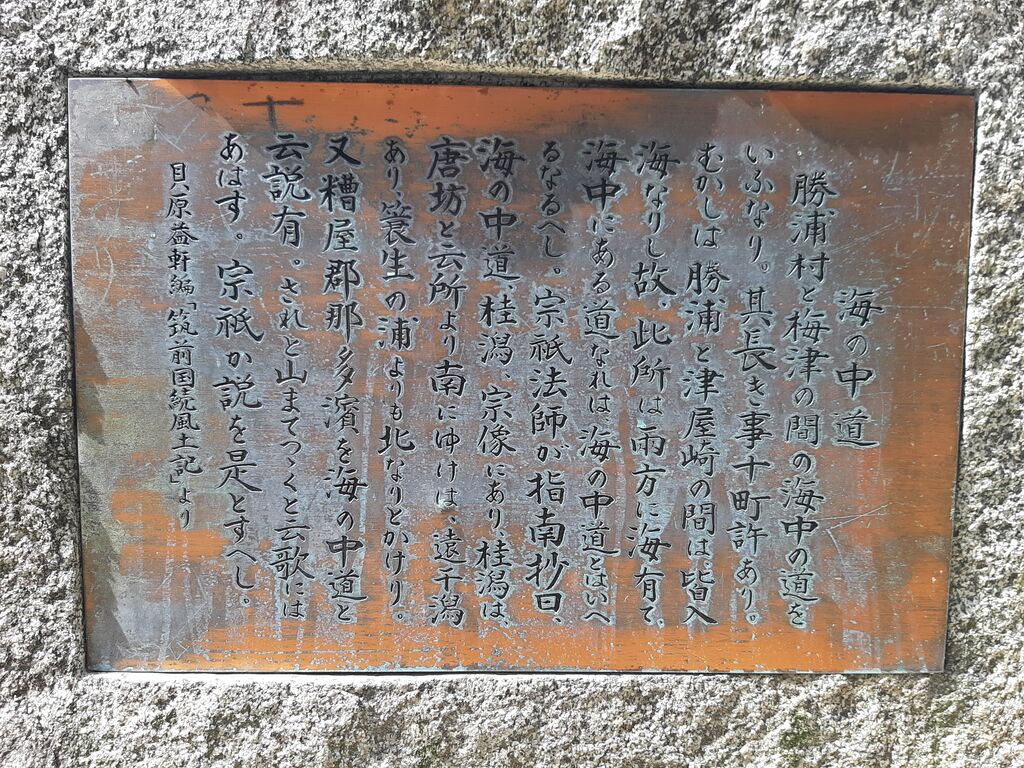 海の中道
勝浦村と梅津の間の海中の道を
いふなり。其長き事十町許あり。
むかしは勝浦と津屋崎の間は、皆入
海なりし故、此所は両方に海有て、
海中にある道なれは海の中道とはいへ
るなるへし。宗祇法師が指南抄曰、
海の中道、桂潟、宗像にあり、桂潟は、
唐坊と云所より南にゆけは、遠干潟
あり、簑生の浦よりも北なりとかけり。
又糟屋郡那多濱を海の中道と
云説有。されと山まてつゝくと云歌には
あはす。宗祇か説を是とすへし。
貝原益軒編「筑前国続風土記」より